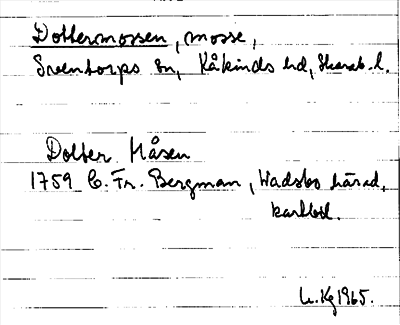 Dottermossen, mosse,
Sventorps sn, Kåkinds hd, Skarab. l.
Dotter Måsen
1759 C. Fr. Bergman, Wadsbo härad,
kartbl.
1965.